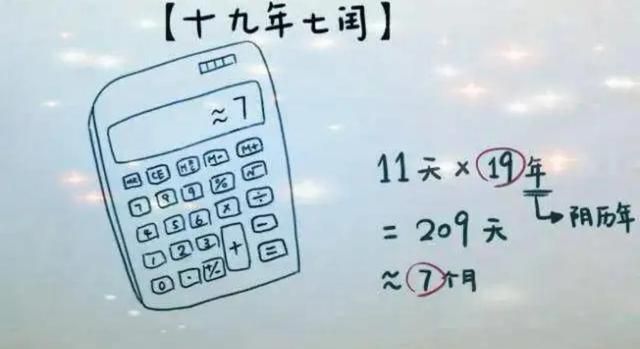 【十九年七闰】
≈7
MC CE M± M- M+
7 8 9 % √
4 5 6 × ÷
1 2 3 + -
0 · +/- =
11天×19年
=209天
≈7个月
阴历年